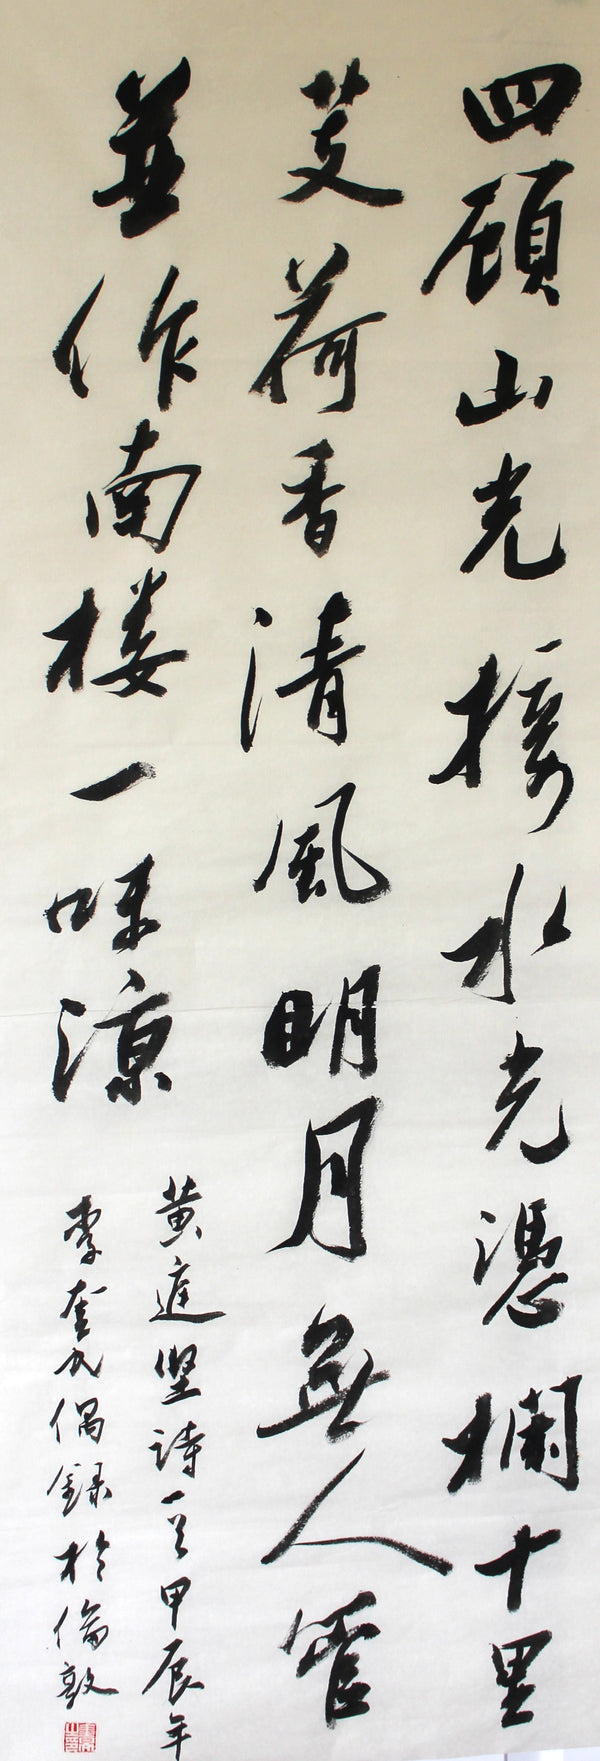 四顾山光接水光憑欄十里
芰荷香清風明月無人管
並作南楼一味涼
黄庭堅詩一首甲辰年
李奎成偶録於倫敦